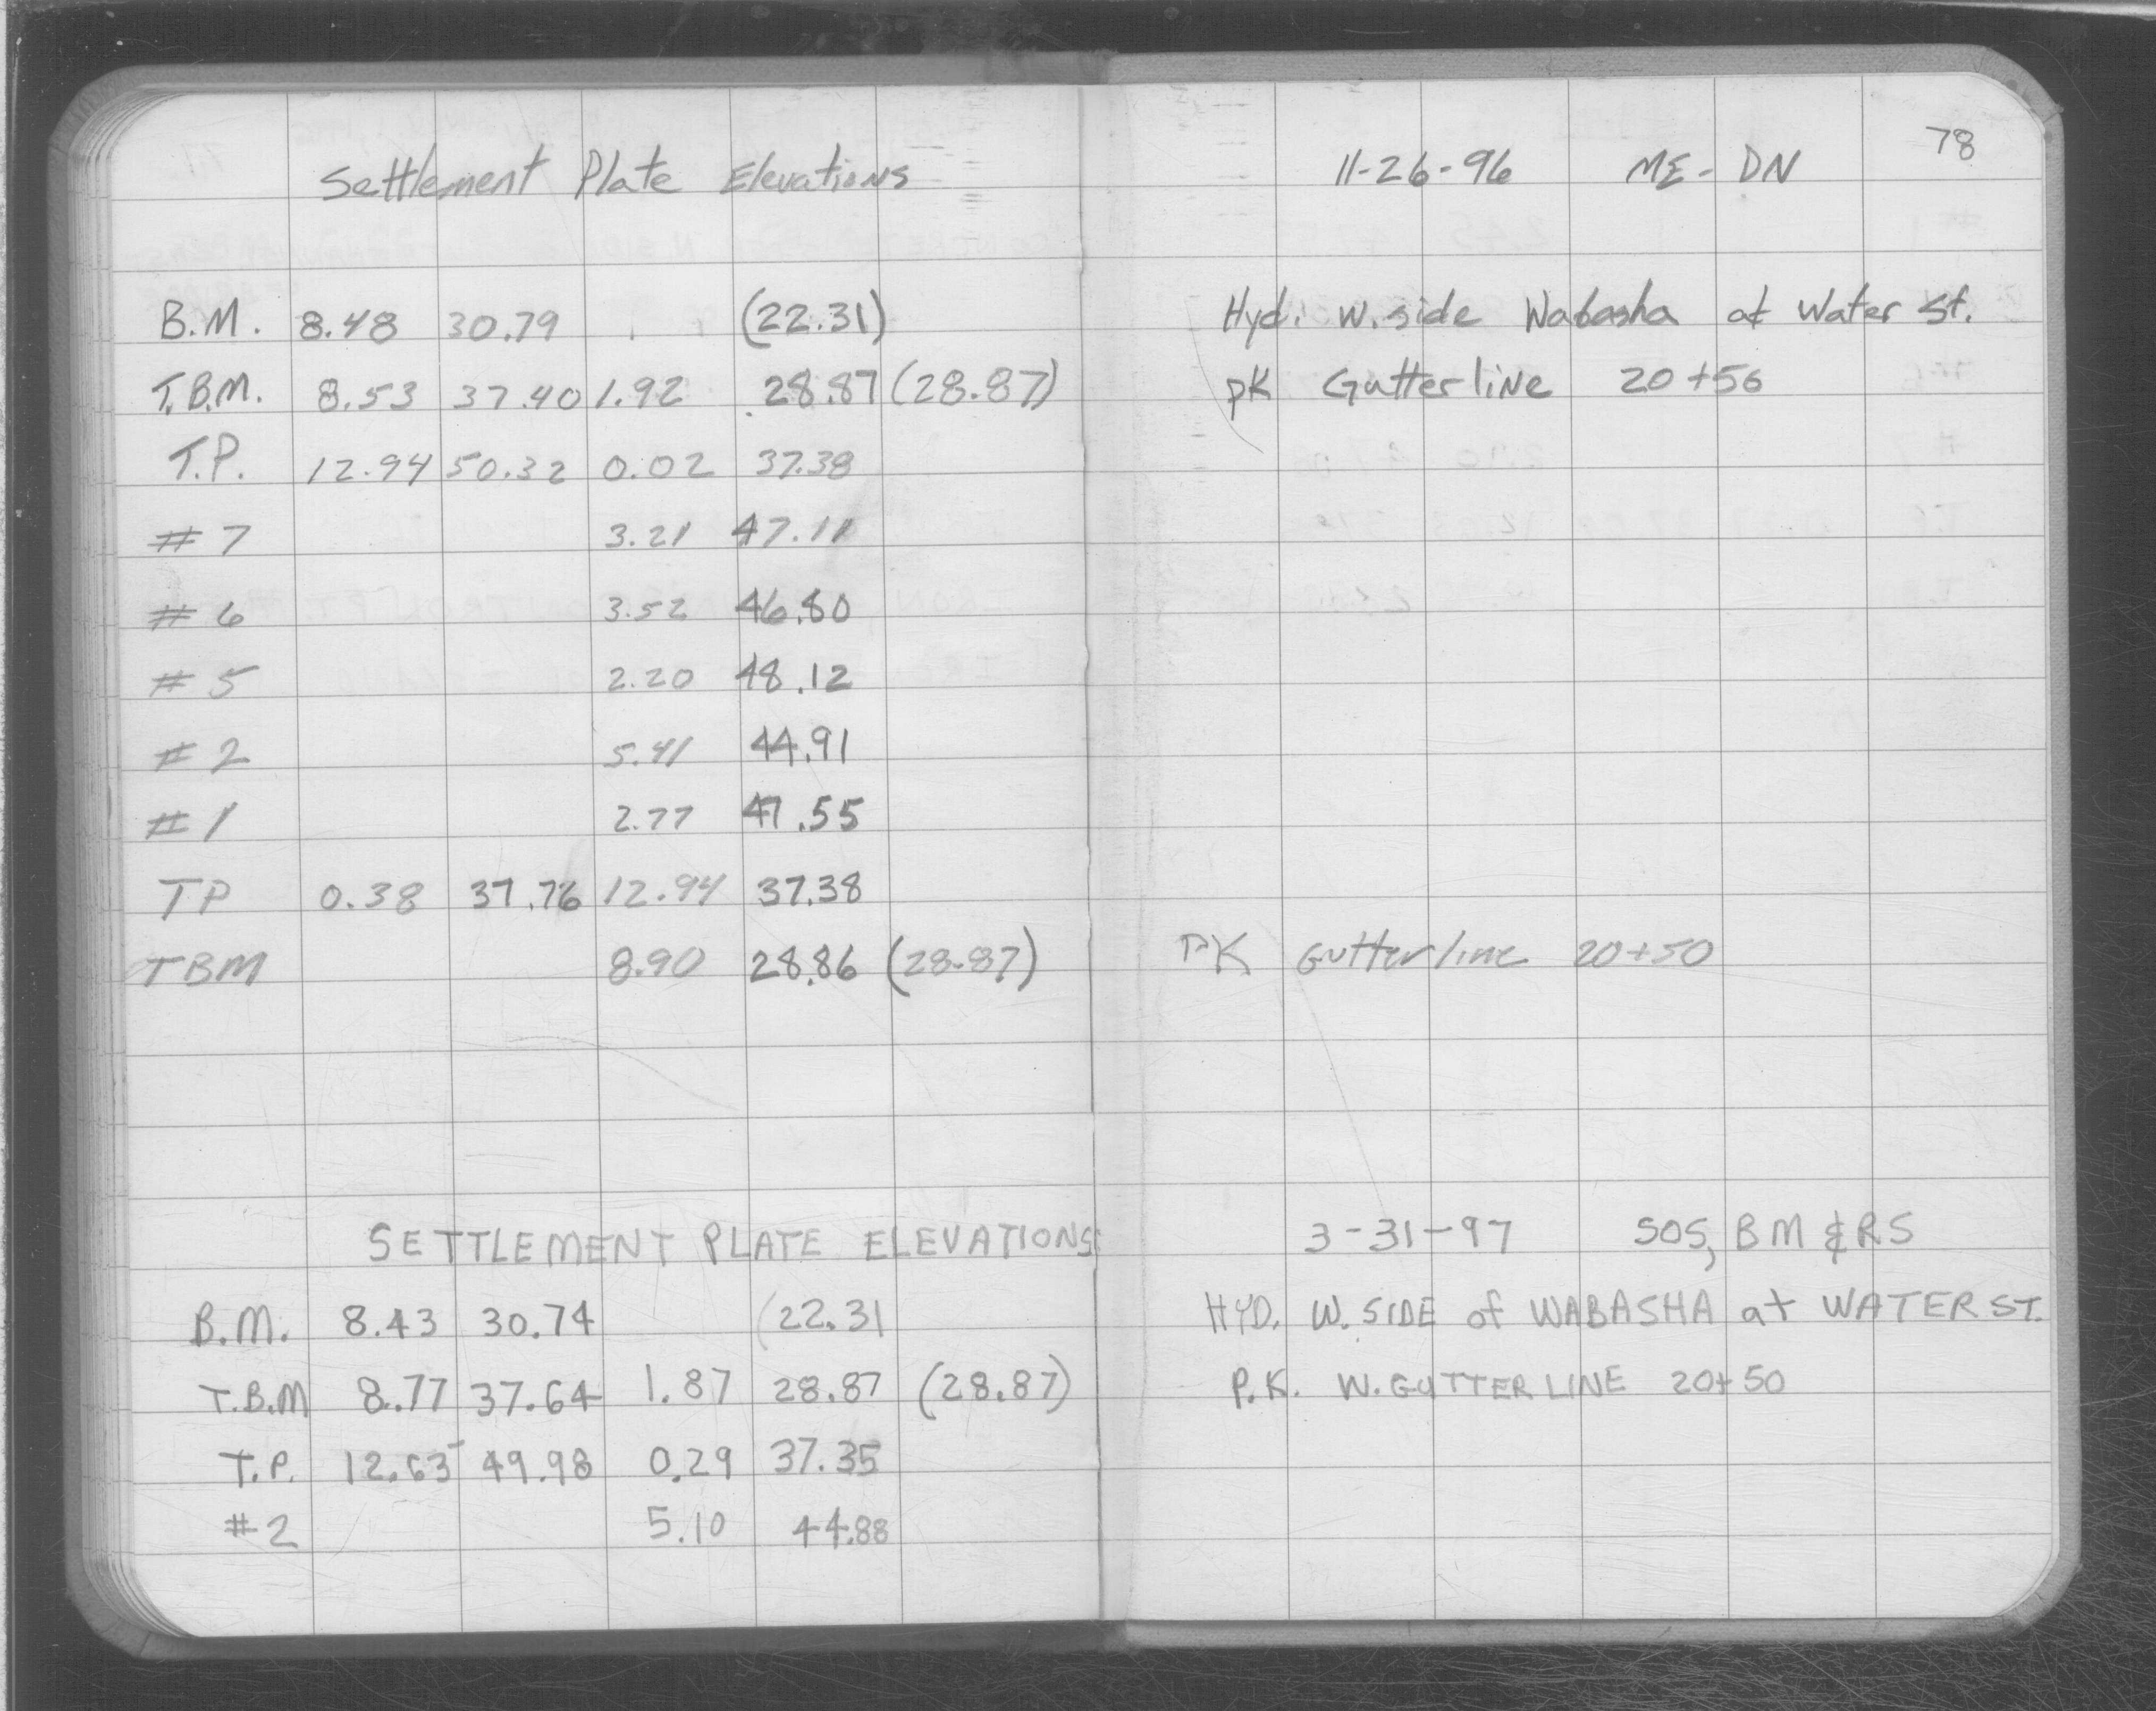 Settlement Plate Elevations 11-26-96 ME-DN 78
B.M. 8.48 30.79 (22.31) Hyd. W. side Wabasha at Water St.
T.B.M. 8.53 37.40 1.92 28.87 (28.87) pK Gutterline 20+50
T.P. 12.94 50.32 0.02 37.38
#7 3.21 47.11
#6 3.52 46.80
#5 2.20 48.12
#2 5.41 44.91
#1 2.77 47.55
TP 0.38 37.76 12.94 37.38
TBM 8.90 28.86 (28.87) PK Gutterline 20+50
SETTLEMENT PLATE ELEVATIONS 3-31-97 SOS, BM & RS
B.M. 8.43 30.74 (22.31 HYD. W. SIDE of WABASHA at WATER ST.
T.B.M 8.77 37.64 1.87 28.87 (28.87) P.K. W. GUTTER LINE 20+50
T.P. 12.63 49.98 0.29 37.35
#2 5.10 44.88